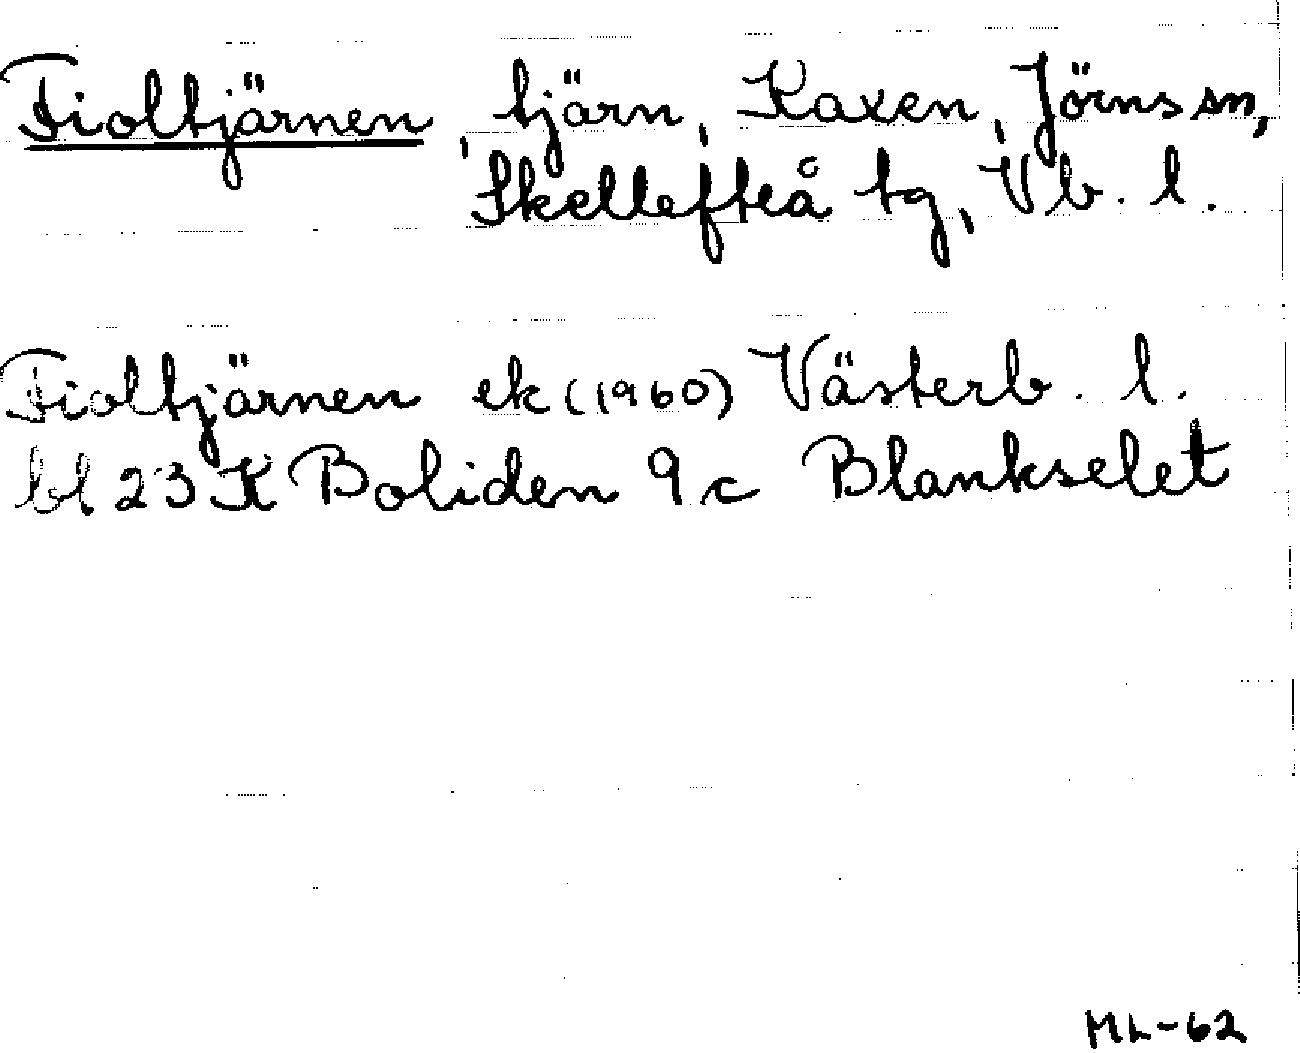 Fioltjärnen, tjärn, Kaxen, Jörns sn,
Skellefteå tg, Vb. l.
Fioltjärnen ek (1960) Västerb. l.
bl 23 K Boliden 9 c Blankselet
ML-62